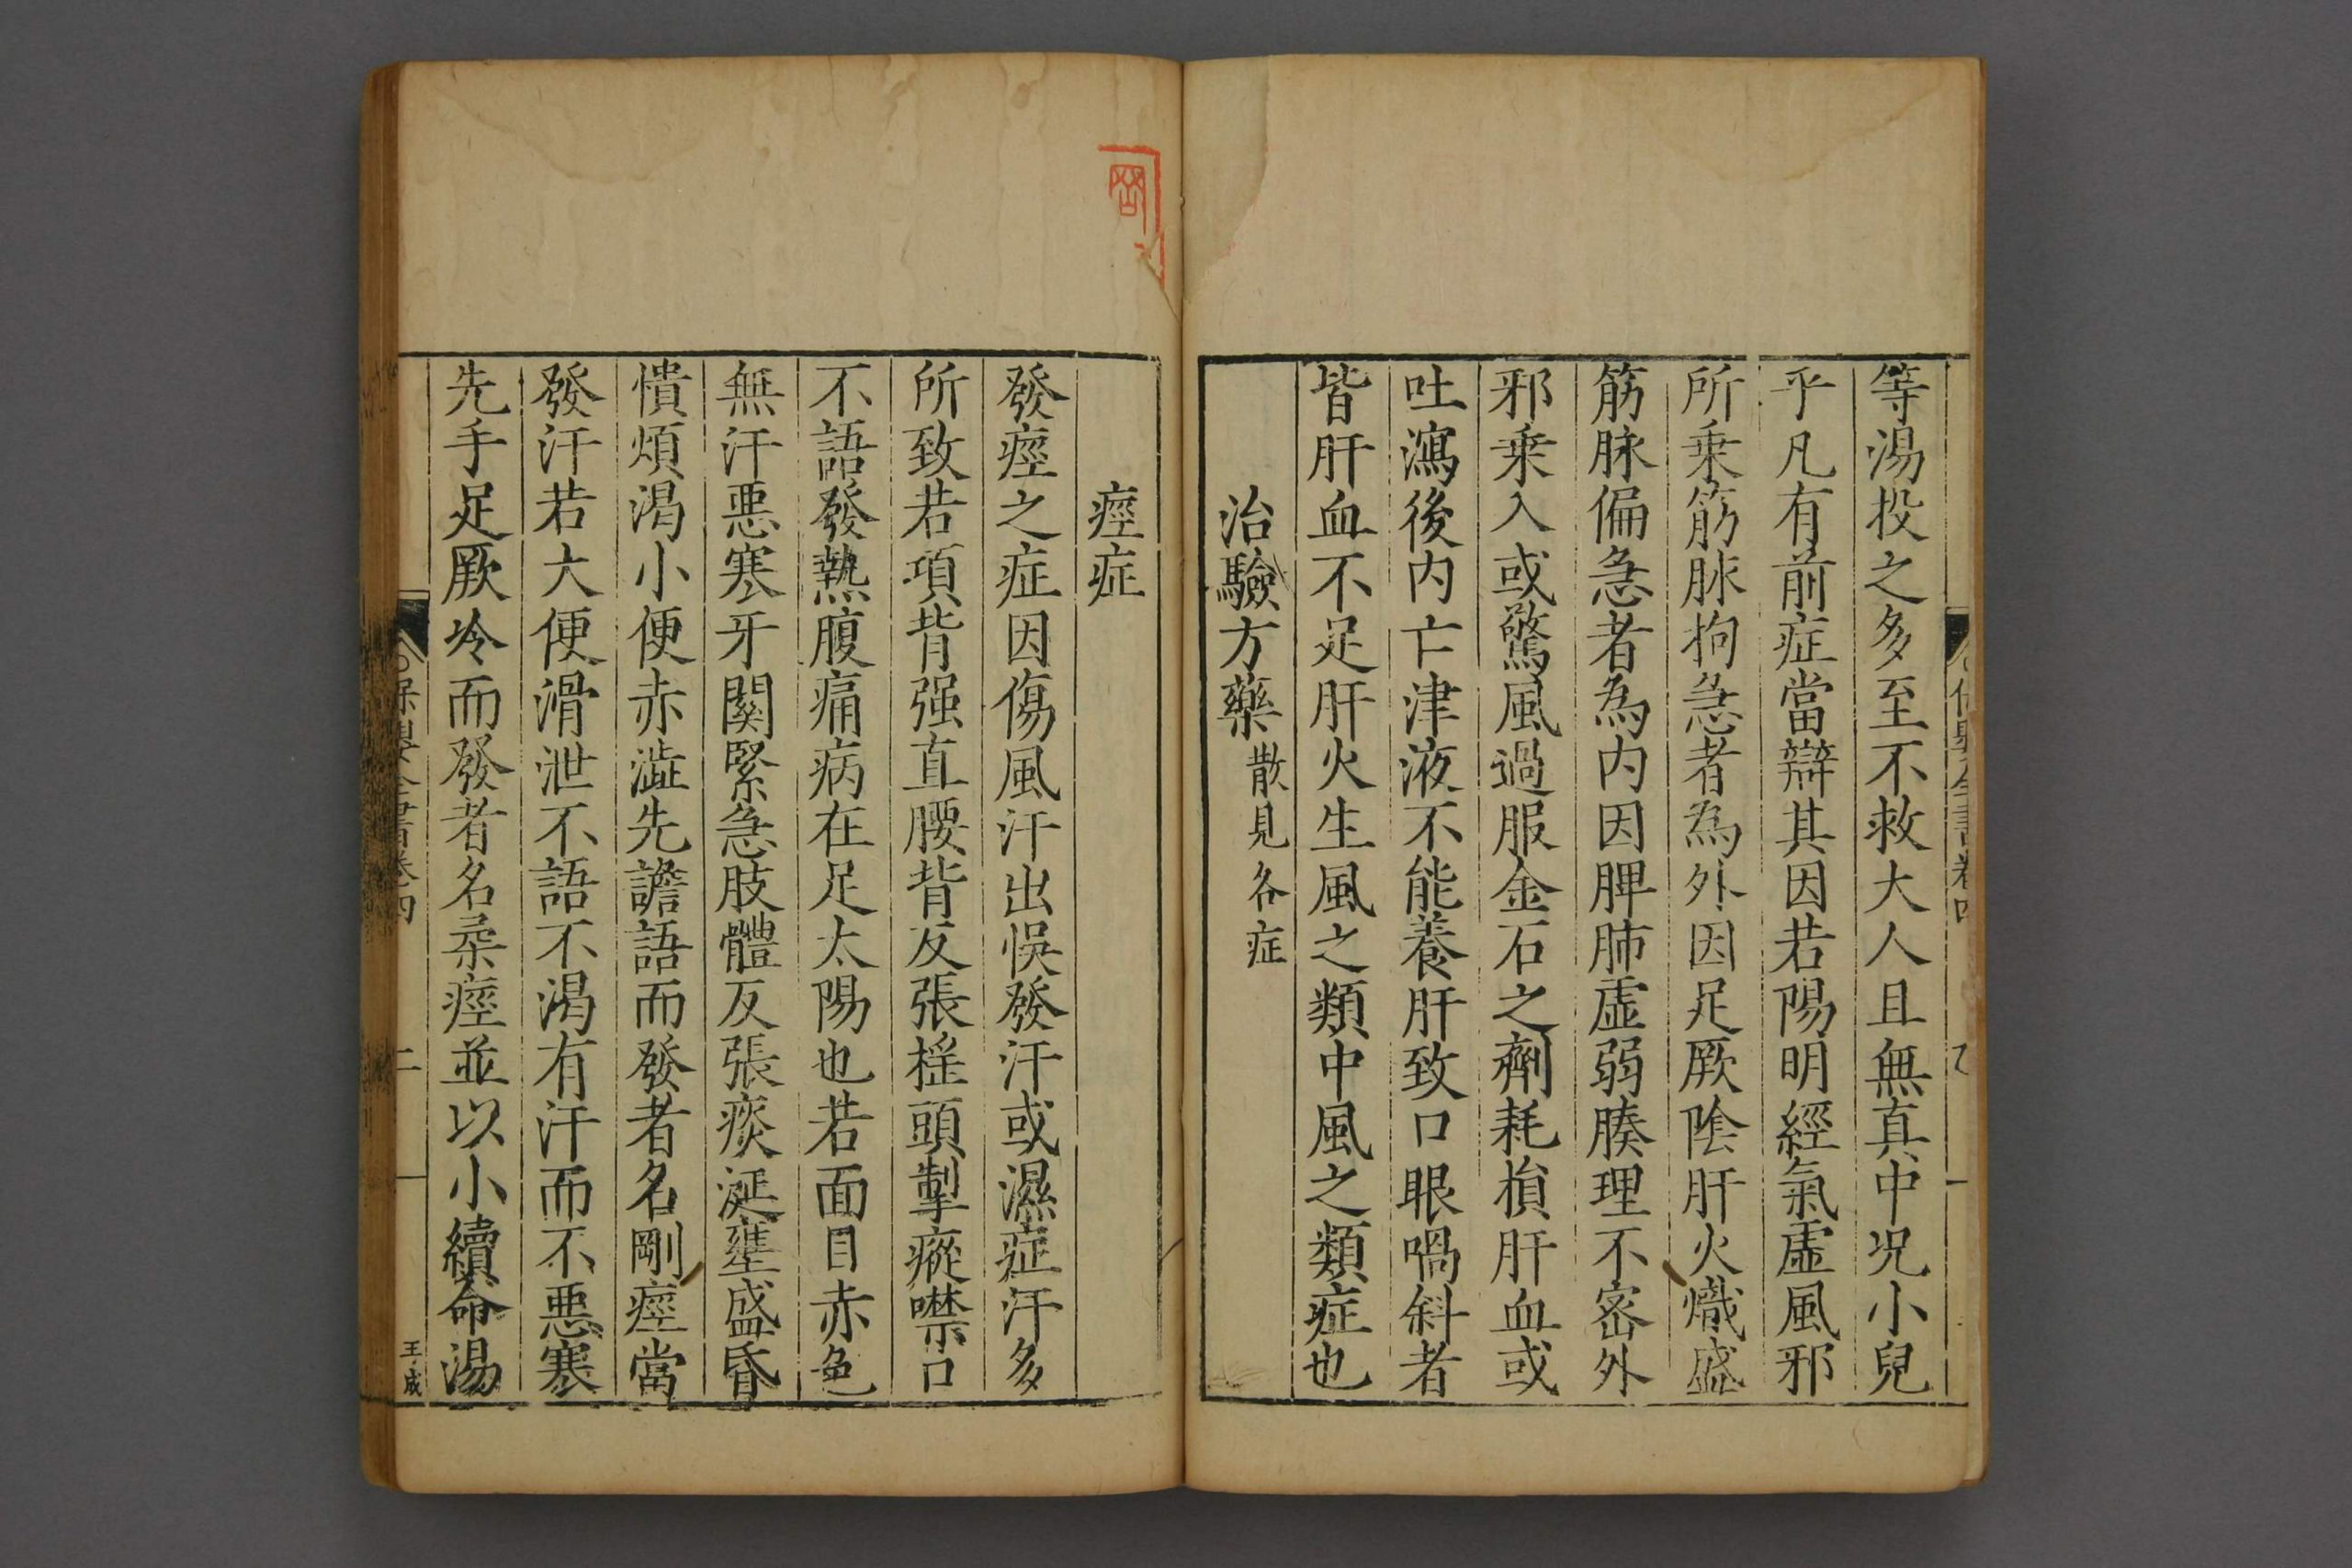 等湯投之多至不救大人且無真中况小兒
乎凡有前症當辯其因若陽明經氣虛風邪
所乗筋脉拘急者為外因足厥陰肝火熾盛
筋脉偏急者為内因脾肺虛弱腠理不密外
邪乗入或驚風過服金石之劑耗損肝血或
吐瀉後内亡津液不能養肝致口眼喎斜者
皆肝血不足肝火生風之類中風之類症也
治驗方藥散見各症
痙症
發痙之症因傷風汗出悞發汗或濕症汗多
所致若項背强直腰背反張摇頭掣瘲噤口
不語發熱腹痛病在足太陽也若面目赤色
無汗惡寒牙關緊急肢體反張痰涎壅盛昏
憒煩渴小便赤澁先譫語而發者名剛痙當
發汗若大便滑泄不語不渴有汗而不惡寒
先手足厥冷而發者名柔痙並以小續命湯
保嬰全書卷四
二
王成